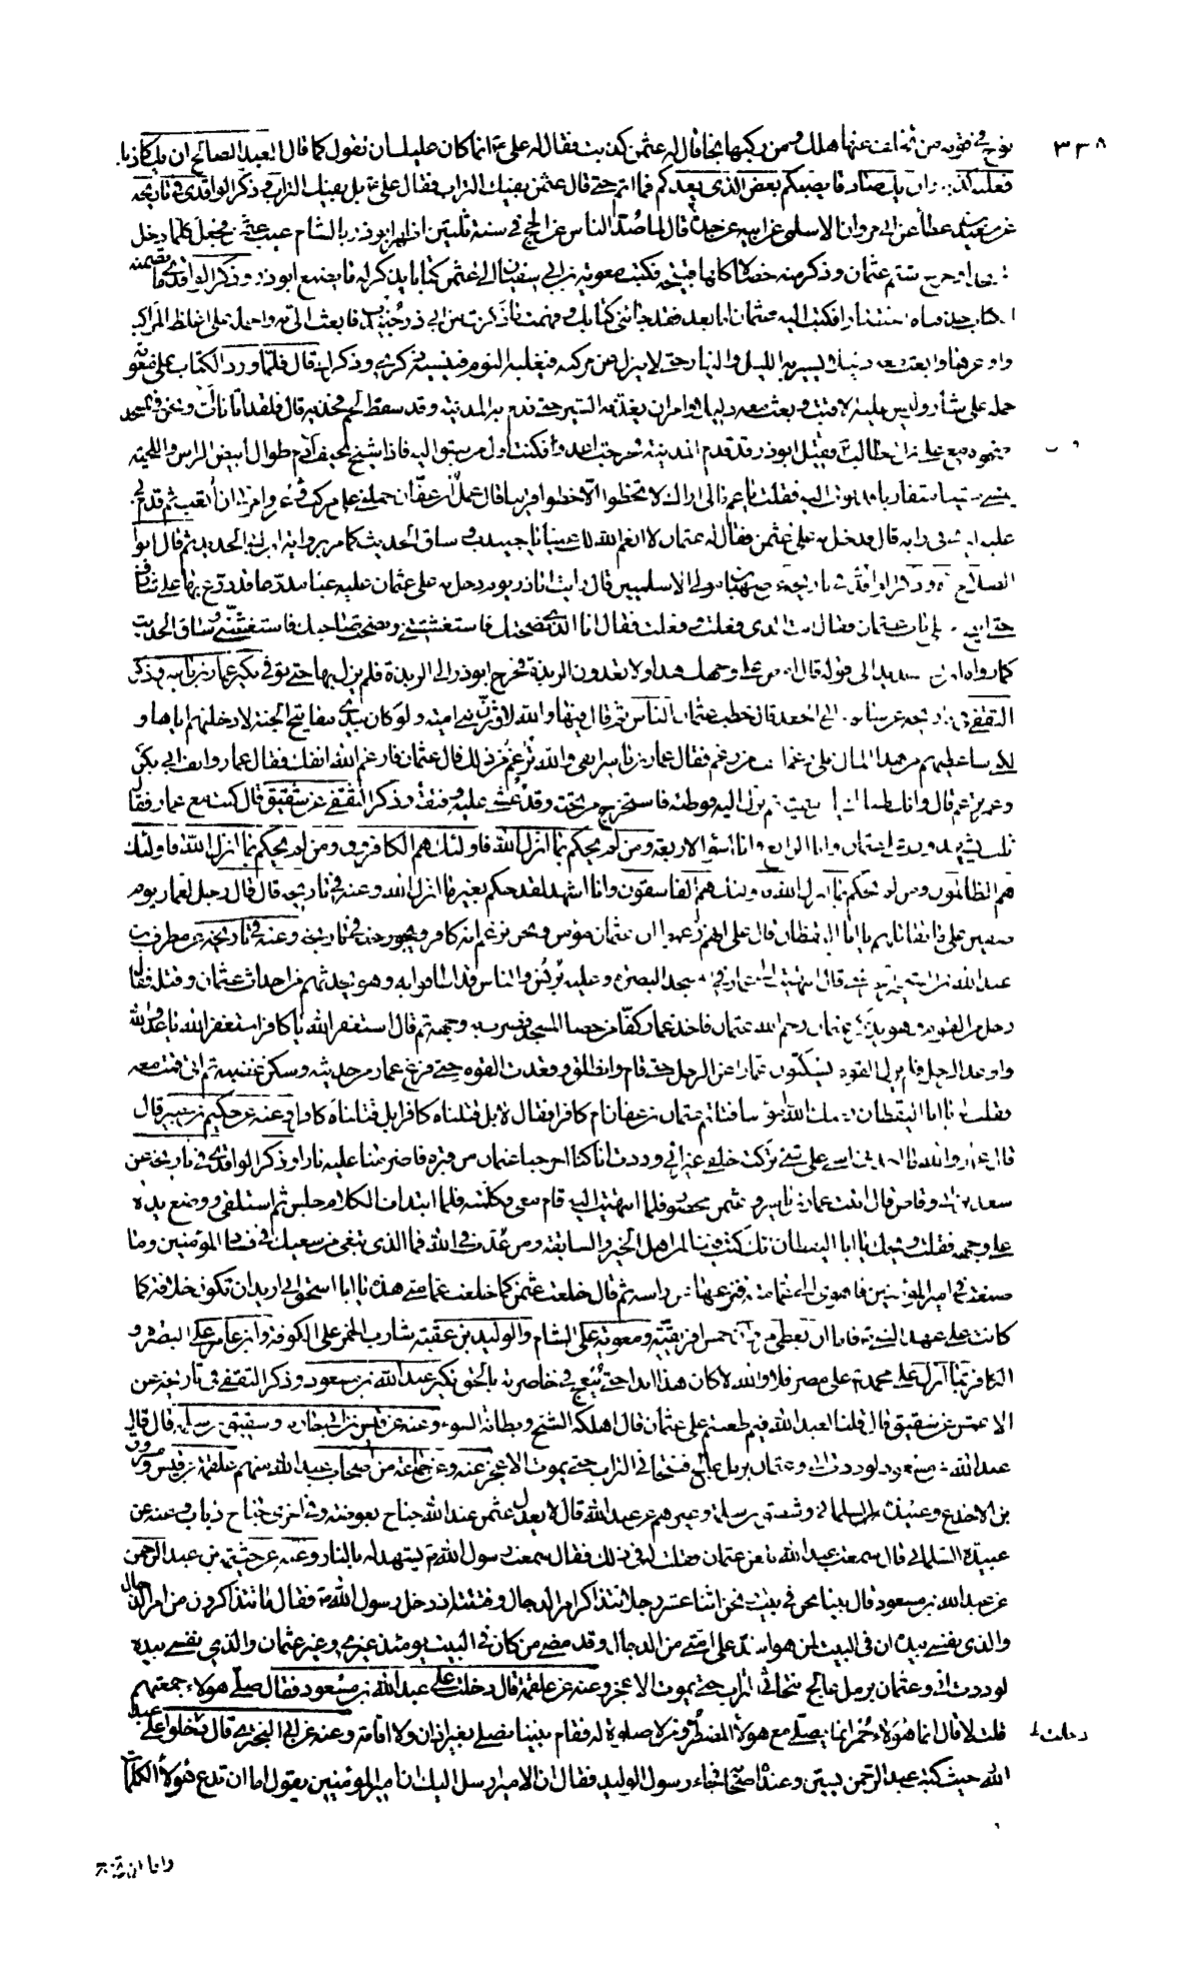 ٣٣٨
نوح في قومه من تخلف عنها هلك ومن ركبها نجا قال له عثمن كذبت فقال له علي ع انما كان عليك ان تقول كما قال العبد الصالح ان يك كاذبا
فعليه كذبه وان يك صادقا يصبكم بعض الذي يعدكم فما اتم حتى قال عثمن بفيك التراب فقال علي ع بل بفيك التراب وذكر الواقدي في تاريخه
عن سعيد بن عطا عن ابي مروان الاسلمي عن ابيه عن جده قال لما صد الناس عن الحج في سنة ثلثين اظهر ابوذر بالشام عيب عثمن فجعل كلما دخل
او خرج شتم عثمان وذكر منه خصالا كلها قبيحة فكتب معوية بن ابي سفين الى عثمن كتابا يذكر له ما يصنع ابوذر وذكر الواقدي ما تضمنه
الكتاب حذفناه اختصارا فكتب اليه عثمان اما بعد فقد جائني كتابك وفهمت ما ذكرت من ابي ذر جنيدب فابعث الي به واحمله على اغلظ المراكب
واوعرها وابعث معه دليلا يسير به الليل والنهار حتى لا ينزل عن مركبه فيغلبه النوم فينسيه ذكري وذكرك قال فلما ورد الكتاب على معوية
حمله على شارف ليس عليه الا قتب وبعث معه دليلا وامر ان يغذ به السير حتى قدم به المدينة وقد سقط لحم فخذيه قال فلقد اتانا آت ونحن في المسجد
ضحوة مع علي بن ابي طالب ع فقيل ابوذر قد قدم المدينة فخرجت اعدو فكنت اول من سبق اليه فاذا شيخ نحيف آدم طوال ابيض الراس واللحية
يمشي مشيا متقاربا فدنوت اليه فقلت يا عم مالي اراك لا تخطو الا خطوا قريبا قال عمل ابن عفان حملني على مركب وعر وامر بي ان اتعب ثم قدم بي
عليه ليرى في رايه قال فدخل به على عثمن فقال له عثمان لا انعم الله بك عينا يا جنيدب وساق الحديث كما مر برواية ابن ابي الحديد ثم قال ابو
الصلاح ره وذكر الواقدي في تاريخه عن صهبان مولى الاسلميين قال رايت اباذر يوم دخل به على عثمان عليه عباء مدرعا قد درع بها على شارف
حتى انيخ به على باب عثمان فقال انت الذي فعلت وفعلت فقال انا الذي نصحتك فاستغششتني ونصحت صاحبك فاستغشني وساق الحديث
كما رواه ابن ابي الحديد الى قوله قال امض على وجهك هذا ولا تعدون الربذة فخرج ابوذر الى الربذة فلم يزل بها حتى توفي نكير عمار بن ياسر وذكر
الثقفي في تاريخه عن سالم بن ابي الجعد قال خطب عثمان الناس ثم قال فيها والله لاوثرن بني امية ولو كان بيدي مفاتيح الجنة لادخلنهم اياها و
لكني ساعطيهم من هذا المال على رغم انف من رغم فقال عمار بن ياسر انفي والله ترغم من ذلك قال عثمان فارغم الله انفك فقال عمار وانف ابي بكر
وعمر ترغم قال وانك لهناك يا بن سمية ثم نزل اليه فوطئه فاستخرج من تحته وقد غشي عليه وفتقه وذكر الثقفي عن شقيق قال كنت مع عمار فقال
ثلث يشهدون على عثمان وانا الرابع وانا اسوء الاربعة ومن لم يحكم بما انزل الله فاولئك هم الكافرون ومن لم يحكم بما انزل الله فاولئك
هم الظالمون ومن لم يحكم بما انزل الله فاولئك هم الفاسقون وانا اشهد لقد حكم بغير ما انزل الله وعنه في تاريخه قال قال رجل لعمار يوم
صفين على ما تقاتلهم يا ابا اليقظان قال على انهم زعموا ان عثمان مؤمن ونحن نزعم انه كافر وعنه في تاريخه عن مطرف بن
عبد الله بن الشخير قال انتهيت الى عمار في مسجد البصرة وعليه برنس والناس قد اطافوا به وهو يحدثهم من احداث عثمان وقتله فقال
رجل من القوم وهو يذكر عثمان رحم الله عثمان فاخذ عمار كفا من حصا المسجد فضرب به وجهه ثم قال استغفر الله يا كافر استغفر الله يا عدو الله
واوعد الرجل فلم يزل القوم يسكتون عمارا عن الرجل حتى قام وانطلق وقعدت القوم حتى فرغ عمار من حديثه وسكن غضبه ثم اني قمت معه
فقلت له يا ابا اليقظان رحمك الله أمؤمنا قتلتم عثمان بن عفان ام كافرا فقال لا بل قتلناه كافرا بل قتلناه كافرا وعنه عن حكيم بن جبير قال
قال عمار والله ما اخذني اسى على شيء تركته خلفي غير اني وددت انا كنا اخرجنا عثمان من قبره فاضرمنا عليه نارا وذكر الواقدي في تاريخه عن
سعد بن ابي وقاص قال اتيت عمار بن ياسر وعثمن محصور فلما انتهيت اليه قام معي فكلمته فلما ابتدات الكلام جلس ثم استلقى ووضع يده
على وجهه فقلت ويحك يا ابا اليقظان انك كنت فينا لمن اهل الخير والسابقة ومن عذب في الله فما الذي تبغي من سعيك في فساد المؤمنين وما
صنعت في امير المؤمنين فاهوى الى عمامته فنزعها عن راسه ثم قال خلعت عثمن كما خلعت عمامتي هذه يا ابا اسحق اني اريد ان تكون خلافة كما
كانت على عهد النبي ص فاما ان يعطي مروان خمس افريقية ومعوية على الشام والوليد بن عقبة شارب الخمر على الكوفة وابن عامر على البصرة و
الكافر بما انزل على محمد ص على مصر فلا والله لا كان هذا ابدا حتى يبعج في خاصرته بالحق نكير عبد الله بن مسعود وذكر الثقفي في تاريخه عن
الاعمش عن شقيق قال قلنا لعبد الله فيم طعنتم على عثمان قال اهلكه الشح وبطانة السوء وعنه عن قيس بن ابي حازم وشقيق بن سلمة قال قال
عبد الله بن مسعود لوددت اني وعثمان برمل عالج فنتحاثى التراب حتى يموت الاعجز وعنه وعن جماعة من اصحاب عبد الله منهم علقمة بن قيس ومسروق
بن الاجدع وعبيدة السلماني وشقيق بن سلمة وغيرهم عن عبد الله قال لا يعدل عثمن عند الله جناح بعوضة وفي اخرى جناح ذباب وعنه عن
عبيدة السلماني قال سمعت عبد الله يلعن عثمان فقلت له في ذلك فقال سمعت رسول الله ص يشهد له بالنار وعنه عن خيثمة بن عبد الرحمن
عن عبد الله بن مسعود قال بينا نحن في بيت ونحن اثنا عشر رجلا نتذاكر امر الدجال وفتنته اذ دخل رسول الله ص فقال ما تتذاكرون من امر الدجال
والذي نفسي بيده ان في البيت لمن هو اشد على امتي من الدجال وقد مضى من كان في البيت يومئذ غيري وغير عثمان والذي نفسي بيده
لوددت اني وعثمان برمل عالج نتحاثى التراب حتى يموت الاعجز وعنه عن علقمة قال دخلت على عبد الله بن مسعود فقال صلى هولاء جمعتهم
قلت لا قال انما هولاء حمر انما يصلي مع هولاء المضطر ومن لا صلوة له فقام بيننا يصلي بغير اذان ولا اقامة وعنه عن ابي البختري قال دخلوا على عبد
الله حيث كتب عبد الرحمن يسير وعنده اصحابه فجاء رسول الوليد فقال ان الامير ارسل اليك ان امير المؤمنين يقول اما ان تدع هولاء الكلمات
واما ان تخرج